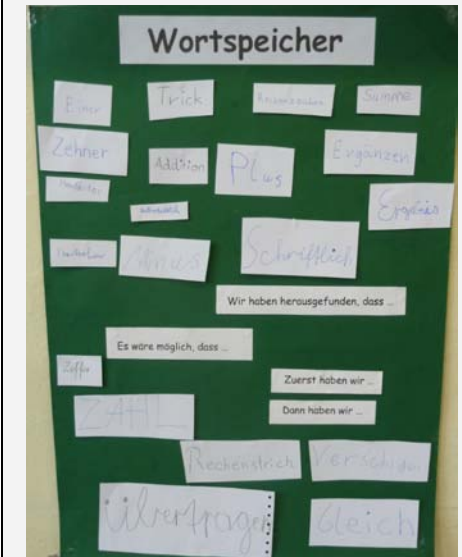 Wortspeicher
Einer
Trick
Summe
Zehner
Addition
Plus
Ergänzen
Ergebnis
Minus
Schriftlich
Wir haben herausgefunden, dass ...
Es wäre möglich, dass ...
Zuerst haben wir ...
Dann haben wir ...
ZAHL
Rechenstrich
Übertragen
Gleich